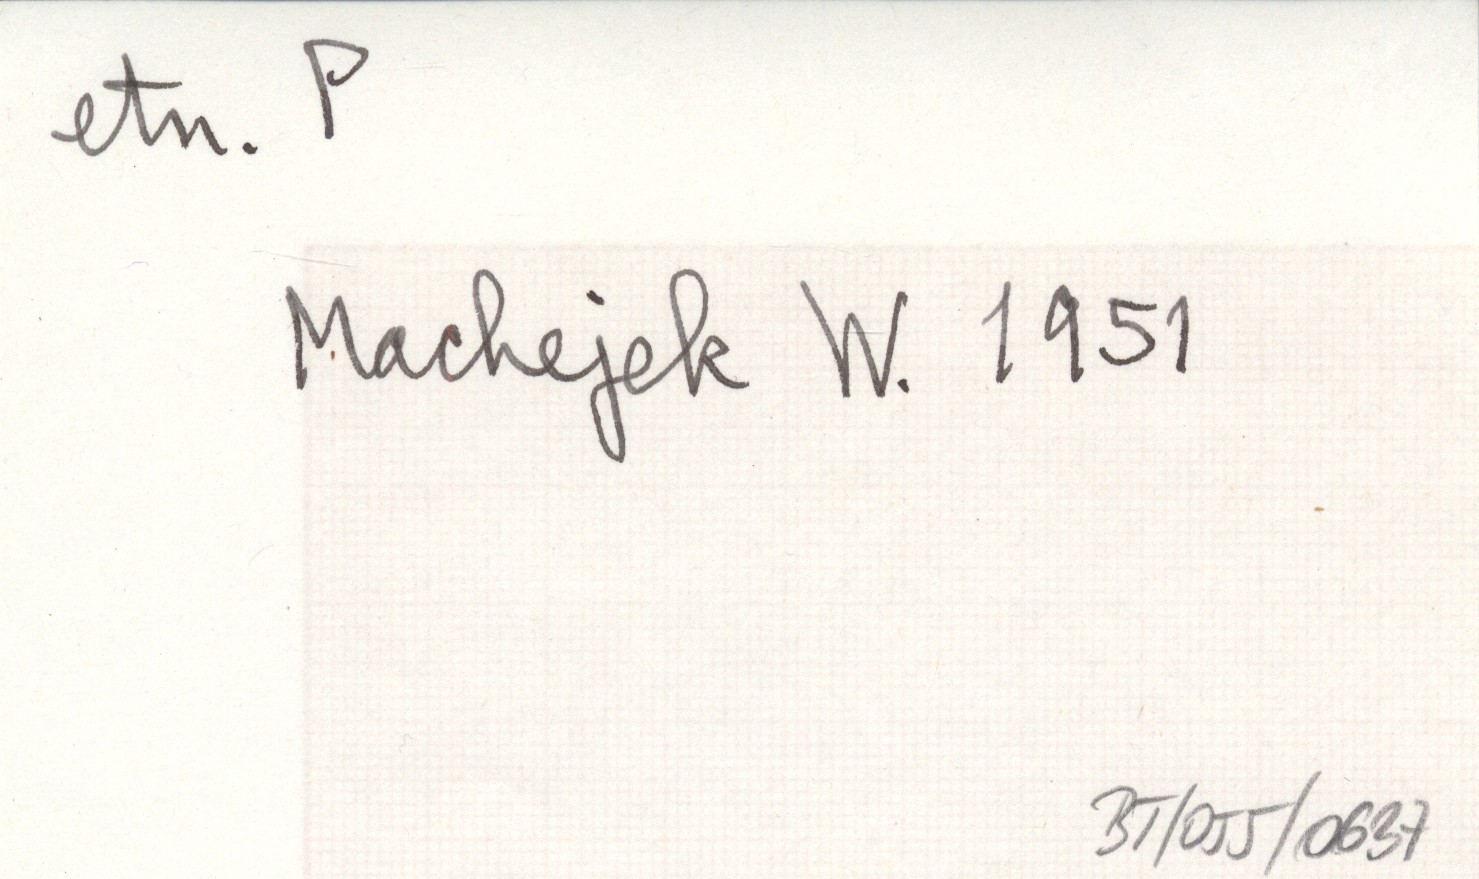 etn. P
Machejek W. 1951
BT/055/0637